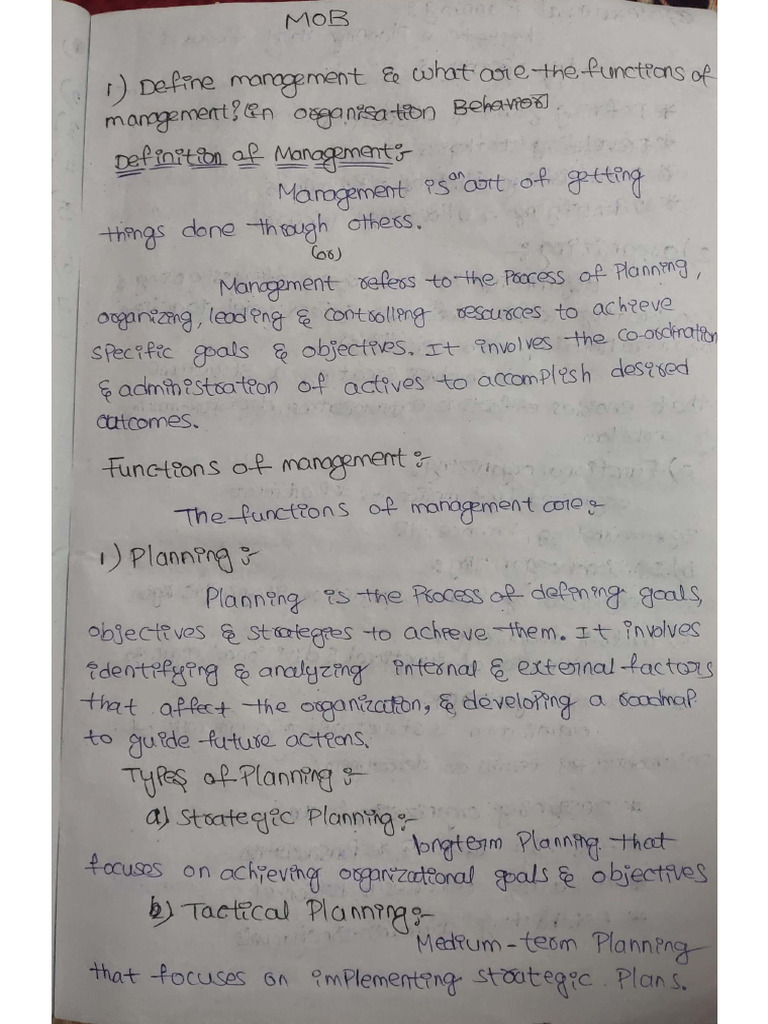 MOB
1) Define management & what are the functions of
management? (in organisation Behavior)
Definition of Management:-
Management is an art of getting
things done through others.
(or)
Management refers to the Process of Planning,
organizing, leading & controlling resources to achieve
specific goals & objectives. It involves the co-ordination
& administration of actives to accomplish desired
outcomes.
Functions of management:-
The functions of management are:-
1) Planning:-
Planning is the Process of defining goals,
objectives & strategies to achieve them. It involves
identifying & analyzing internal & external factors
that affect the organization, & developing a roadmap
to guide future actions.
Types of Planning:-
a) Strategic Planning:-
longterm Planning that
focuses on achieving organizational goals & objectives
b) Tactical Planning:-
Medium-term Planning
that focuses on implementing strategic Plans.